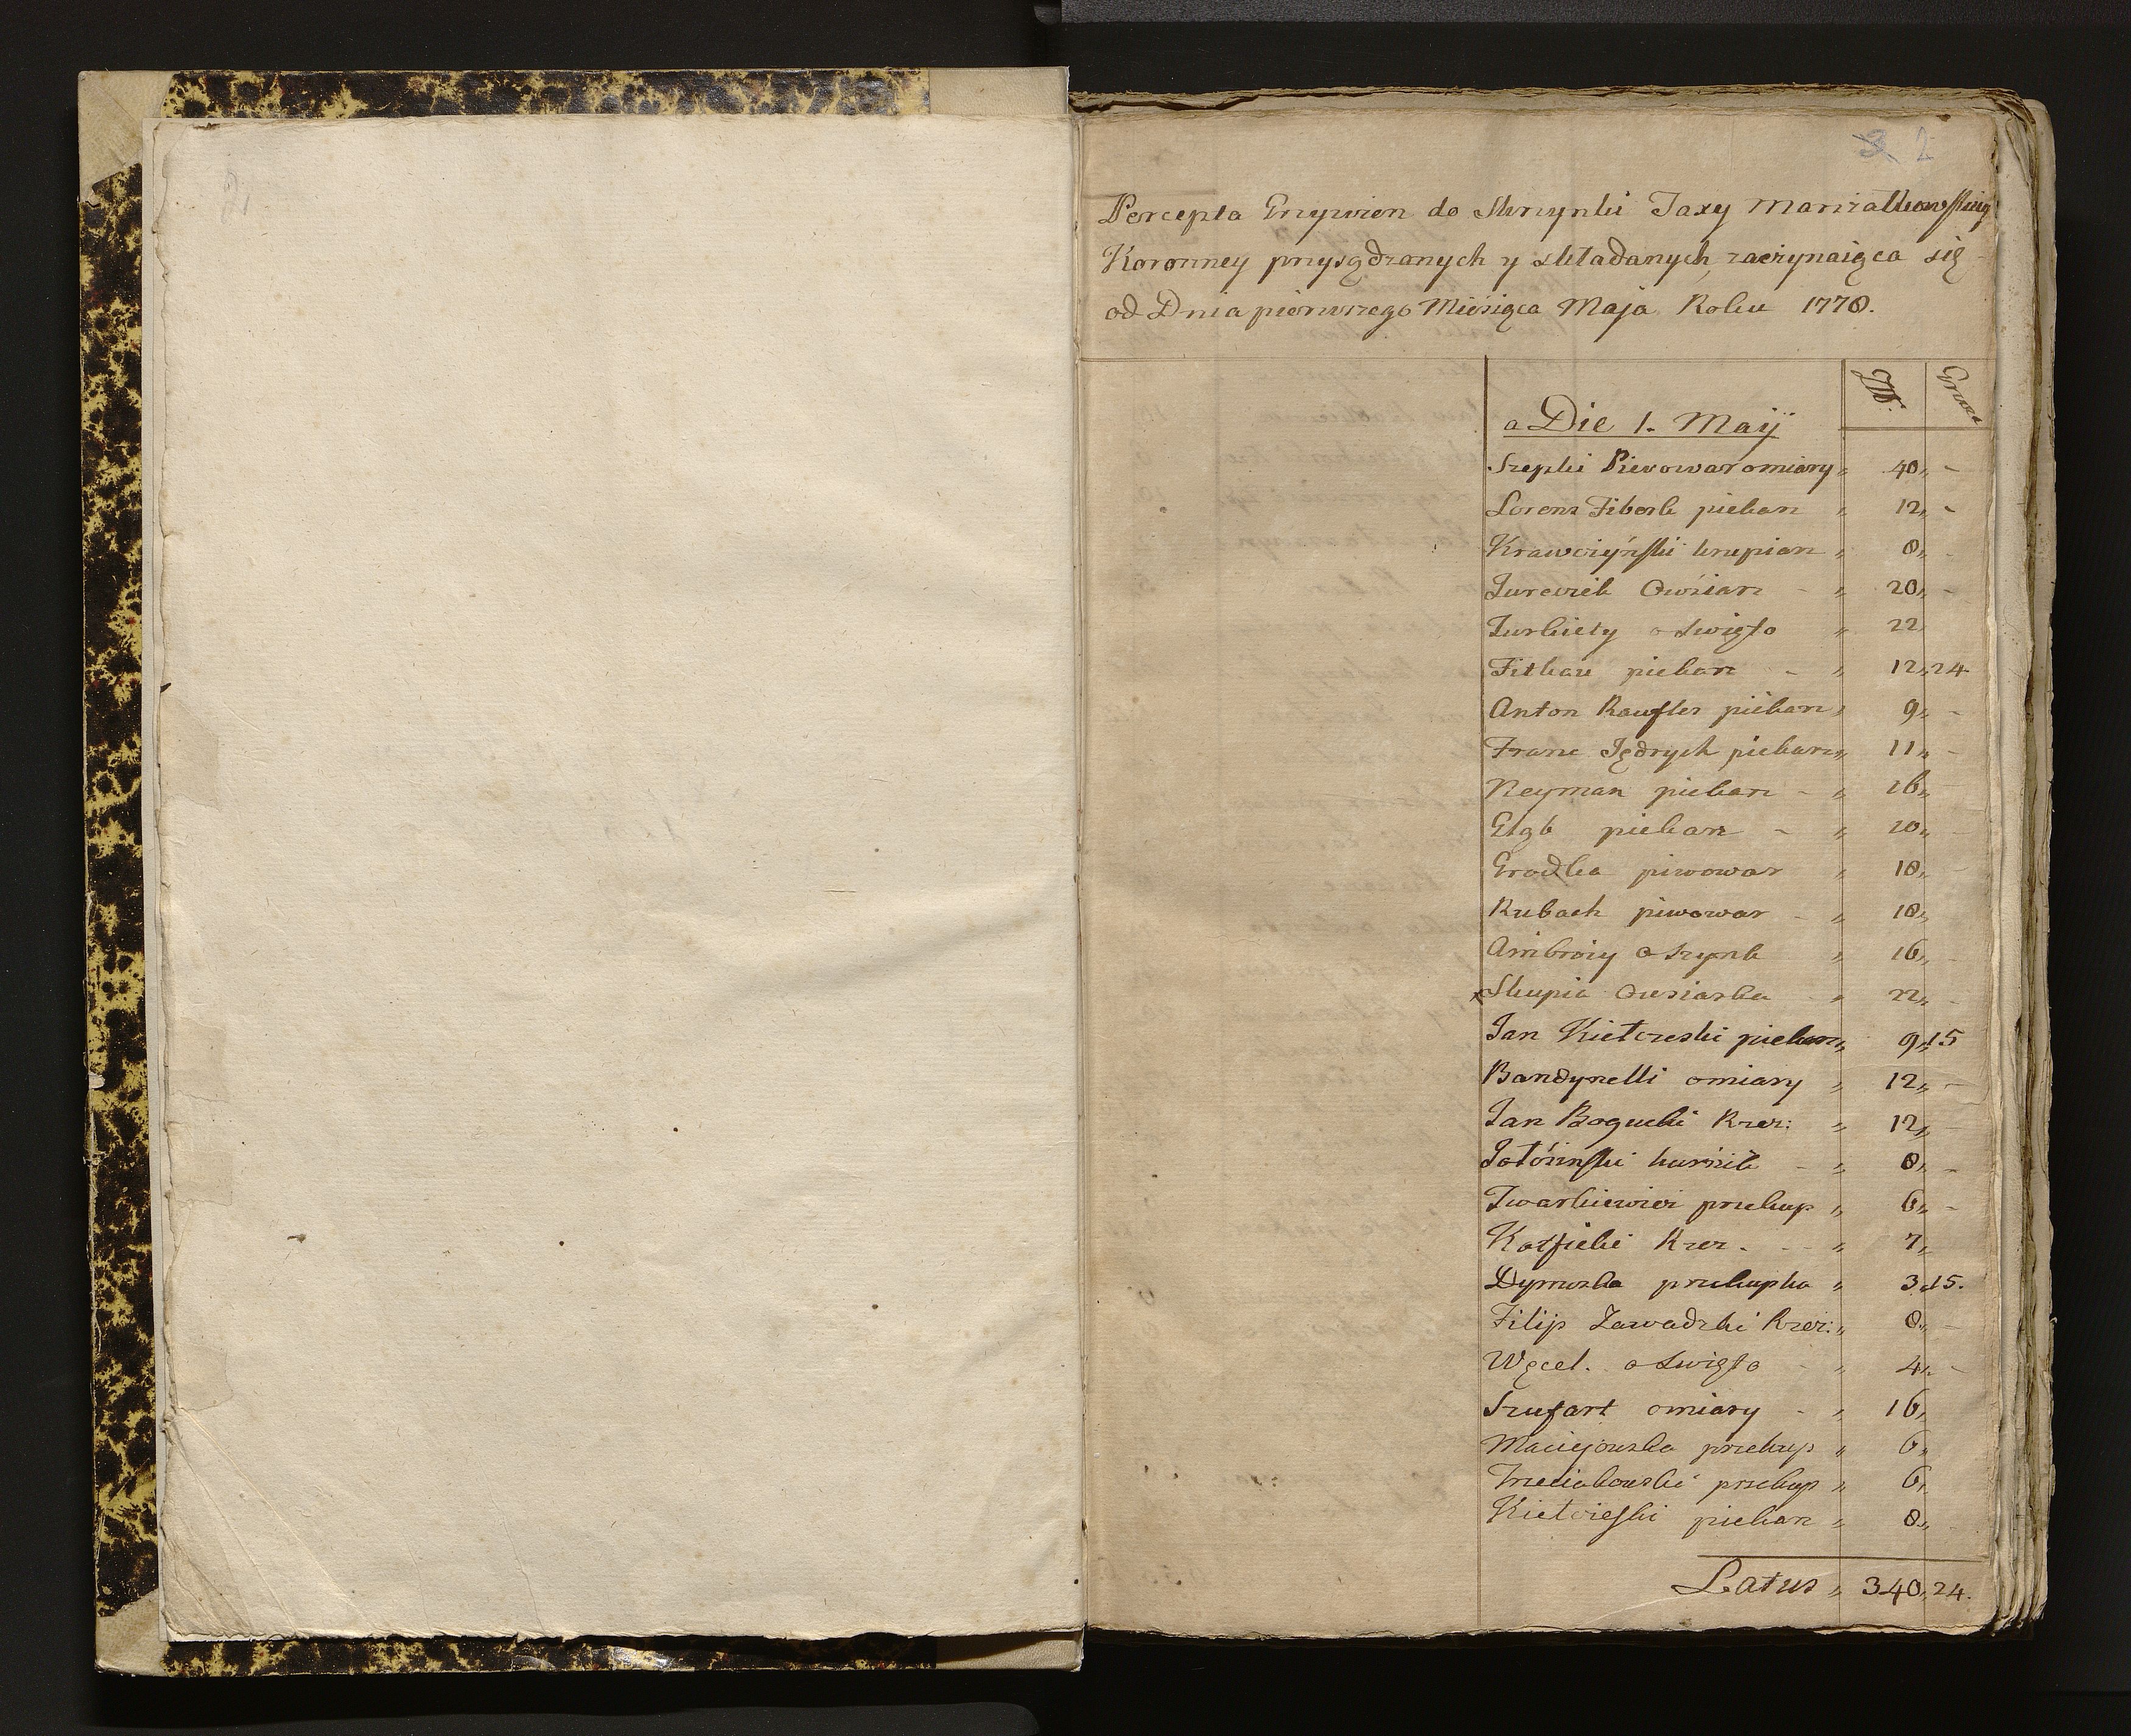 2
Percepta Grzywien do Skrzynki Taxy Marszałkowskiey
Koronney przysądzanych y składanych, zaczynaiąca się
od Dnia pierwszego Miesiąca Maja Roku 1778.
Złł. Grosze
a Die 1. Maij
Szepki Piwowar o miary „ 40„ -
Lorenz Fiberk piekarz „ 12„ -
Krawczyński krupiarz „ 8„ -
Jurczik Owsiarz - „ 20„ -
Turkiety o swięto „ 22
Fitkau piekarz - „ 12„24
Anton Raufler piekarz „ 9„ -
Franc Jędrych piekarz „ 11„ -
Neyman piekarz - „ 16„
piekarz - „ 10„
Grodka piwowar „ 18„ -
Kubach piwowar - „ 18„
Ambroży o szynk „ 16„ -
x Skupia Owsiarka - „ 22„ -
Jan Kiełczeski piekarz „ 9„15
Bandynelli o miary „ 12„ -
Jan Bogucki Rzez: „ 12„ -
kurnik - „ 8„ -
Twarkiewicz przekup „ 6„ -
Rzez. - - „ 7„
przekupka „ 3„15.
Filip Zawadzki Rzez: „ 8„ -
Węcel. o swięto - „ 4„ -
Szufart o miary - „ 16„
Maciejowska przekup „ 6„
Trzeciakowski przekup „ 6„
Kiełczeski piekarz „ 8„ -
Latus „ 340„24.